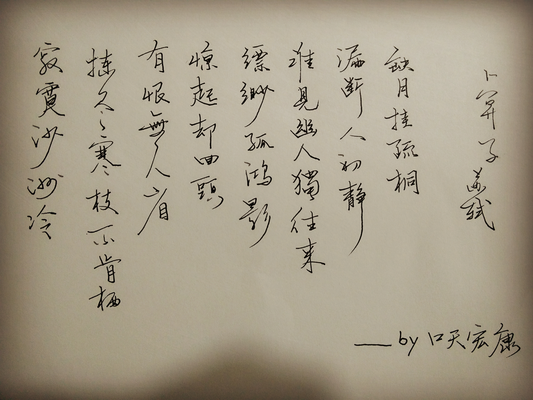 卜算子 苏轼
缺月挂疏桐
漏断人初静
谁見幽人獨往来
缥缈孤鸿影
惊起却回頭
有恨無人省
拣尽寒枝不肯栖
寂寞沙洲冷
——by 口天宏康